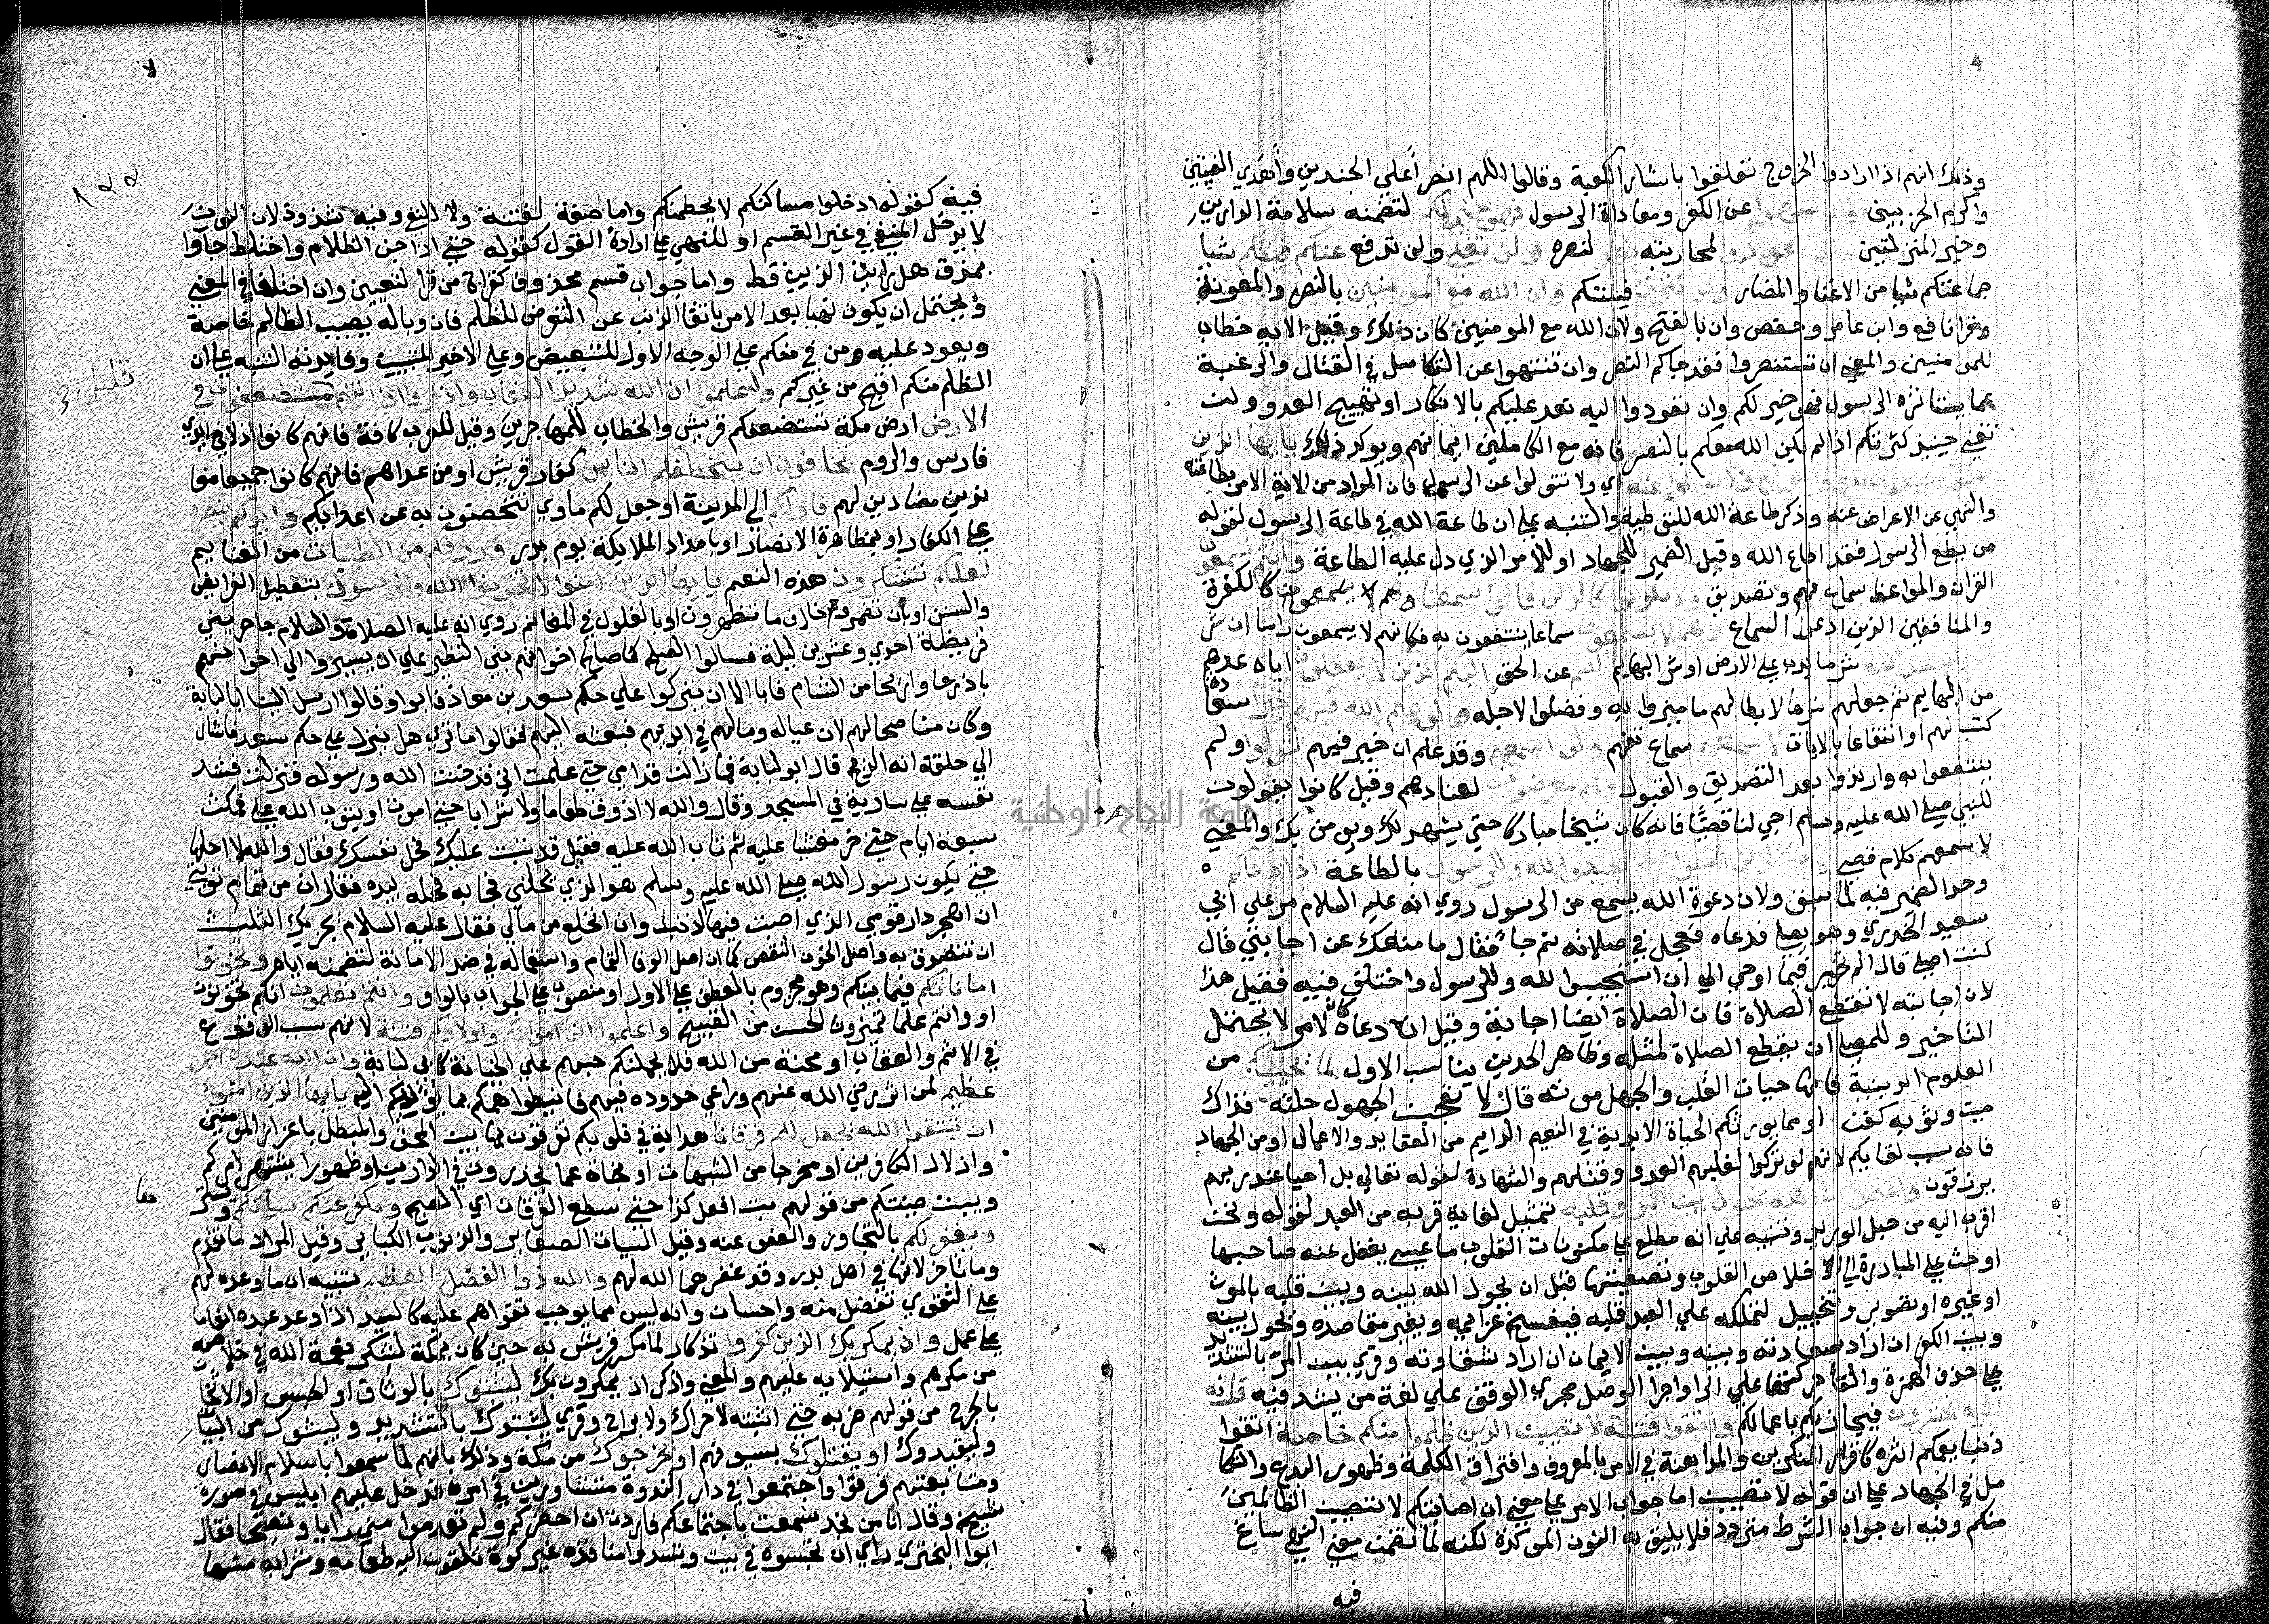 وذلك انهم اذا ارادوا الخروج تعلقوا باستار الكعبة وقالوا اللهم انصر أعلي الجندين وأهدي الفيتين
واكرم الحزبيين وان تنتهوا عن الكفر ومعاداة الرسول فهو خير لكم لتضمنه سلامة الدارين
وخير المنزلتين وان تعودوا لمحاربته نعد لنصره ولن تغني ولن تدفع عنكم فيتكم شيا
جماعتكم شيا من الاغنا والمضار ولو كثرت فيتكم وان الله مع المومنين بالنصر والمعونة
وقرا نافع وابن عامر وحفص وان بالفتح ولان الله مع المومنين كان ذلك وقيل الايه خطاب
للمومنين والمعني ان تستنصروا فقد جاكم النصر وان تنتهوا عن التكاسل في القتال والرغبة
عما يستاثره الرسول فهو خير لكم وان تعودوا اليه نعد عليكم بالانكار او تهييج العدو ولن
تغني حينيذ كثرتكم اذا لم يكن الله معكم بالنصر فانه مع الكاملين ايمانهم ويوكد ذلك يايها الذين
امنوا اطيعوا الله ورسوله ولا تولوا عنه اي ولا تتولوا عن الرسول فان المراد من الاية الامر بطاعته
والنهي عن الاعراض عنه وذكر طاعة الله للتوطية والتنبيه علي ان طاعة الله في طاعة الرسول لقوله
من يطع الرسول فقد اطاع الله وقيل الضمير للجهاد او للامر الذي دل عليه الطاعة وانتم تسمعون
القران والمواعظ سماع فهم وتصديق ولا تكونوا كالذين قالوا سمعنا وهم لا يسمعون كالكفرة
والمنافقين الذين ادعوا السماع وهم لا يسمعون سماعا ينتفعون به فكانهم لا يسمعون راسا ان شر
الدواب عند الله شر ما يدب علي الارض او شر البهايم الصم عن الحق البكم الذين لا يعقلون اياه عدهم
من البهايم ثم جعلهم شرها لابطالهم ما ميزوا به وفضلوا لاجله ولو علم الله فيهم خيرا سعادة
كتبت لهم او انتفاعا بالايات لاسمعهم سماع تفهم ولو اسمعهم وقد علم ان خير فيهم لتولوا ولم
ينتفعوا به وارتدوا بعد التصديق والقبول وهم معرضون لعنادهم وقيل كانوا يقولون
للنبي صلي الله عليه وسلم احي لنا قصيا فانه كان شيخا مباركا حتي يشهد لك ونومن بك والمعني
لاسمعهم كلام قصي يايها الذين امنوا استجيبوا لله وللرسول بالطاعة اذا دعاكم
وحد الضمير فيه لما سبق ولان دعوة الله يسمع من الرسول روي انه عليه السلام مر علي ابي
سعيد الخدري وهو يصلي فدعاه فعجل في صلاته ثم جا فقال ما منعك عن اجابتي قال
كنت اصلي قال الم تخبر فيما اوحي الي ان استجيبوا لله وللرسول واختلف فيه فقيل هذا
لان اجابته لا تقطع الصلاة فان الصلاة ايضا اجابة وقيل ان دعاه كان لامر لا يحتمل
التاخير وللمصلي ان يقطع الصلاة لمثله وظاهر الحديث يناسب الاول لما يحييكم من
العلوم الدينية فانها حياة القلب والجهل موته قال لا تعجبن الجهول حلته فذاك
ميت وثوبه كفن او مما يورثكم الحياة الابدية في النعيم الدايم من العقايد والاعمال او من الجهاد
فانه سبب بقايكم لانهم لو تركوا لغلبهم العدو وقتلهم والشهادة لقوله تعالي بل احيا عند ربهم
يرزقون واعلموا ان الله يحول بين المر وقلبه تمثيل لغاية قربه من العبد لقوله ونحن
اقرب اليه من حبل الوريد وتنبيه علي انه مطلع علي مكنونات القلوب ما عسي يغفل عنه صاحبها
او حث علي المبادرة الي اخلاص القلوب وتصفيتها قبل ان يحول الله بينه وبين قلبه بالموت
او غيره او تصوير وتخييل لتملكه علي العبد قلبه فيفسخ عزايمه ويغير مقاصده ويحول بينه
وبين الكفر ان اراد سعادته وبينه وبين الايمان ان اراد شقاوته وقري بين المر بالتشديد
علي حذف الهمزة والقا حركتها علي الرا واجرا الوصل مجري الوقف علي لغة من يشدد فيه وانه
اليه تحشرون فيجازيكم باعمالكم واتقوا فتنة لا تصيبن الذين ظلموا منكم خاصة اتقوا
ذنبا يعمكم اثره كاقرار المنكر بين والمداهنة في الامر بالمعروف وافتراق الكلمة وظهور البدع والتكا
سل في الجهاد علي ان قوله لا تصيبن اما جواب الامر علي معني ان اصابتكم لا تصيبن الظالمين
منكم وفيه ان جواب الشرط متردد فلا يليق به النون الموكدة لكنه لما تضمن معني النهي ساغ
فيه
فيه كقوله ادخلوا مساكنكم لا يحطمنكم واما صفة لفتنة ولا للنفي وفيه شذوذ لان النون
لا يدخل المنفي في غير القسم او للنهي علي ارادة القول كقوله حتي اذا جن الظلام واختلط جاوا
بمذق هل رايت الذيب قط واما جواب قسم محذوف كقراة من قرا لتصيبن وان اختلفا في المعني
ويحتمل ان يكون نهيا بعد الامر باتقا الذنب عن التعرض للظلم فان وباله يصيب الظالم خاصة
ويعود عليه ومن في منكم علي الوجه الاول للتبعيض وعلي الاخير للتبيين وفايدته التنبيه علي ان
الظلم منكم اقبح من غيركم واعلموا ان الله شديد العقاب واذكروا اذ انتم مستضعفون في
قليل
الارض ارض مكة تستضعفكم قريش والخطاب للمهاجرين وقيل للعرب كافة فانهم كانوا اذلا في ايدي
فارس والروم تخافون ان يتخطفكم الناس كفار قريش او من عداهم فانهم كانوا جميعا معا
دين مضادين لهم فاواكم الي المدينة او جعل لكم ماوي تتحصنون به عن اعدايكم وايدكم بنصره
علي الكفار او بمظاهرة الانصار او بامداد الملايكة يوم بدر ورزقكم من الطيبات من الغنايم
لعلكم تشكرون هذه النعم يايها الذين امنوا لا تخونوا الله والرسول بتعطيل الفرايض
والسنن او بان تضمروا خلاف ما تظهرون او بالغلول في المغانم روي انه عليه الصلاة والسلام حاصر بني
قريظة احدي وعشرين ليلة فسالوا الصلح كما صالح اخوانهم بني النظير علي ان يسيروا الي اخوانهم
باذرعات واريحا من الشام فابا الا ان ينزلوا علي حكم سعد بن معاذ فابوا وقالوا ارسل الينا ابا لبابة
وكان مناصحا لهم لان عياله وماله في ايديهم فبعثه اليهم فقالوا ما تري هل ننزل علي حكم سعد فاشار
الي حلقه انه الذبح قال ابو لبابة فما زالت قدامي حتي علمت اني قد خنت الله ورسوله فنزلت فشد
نفسه علي سارية في المسجد وقال والله لا اذوق طعاما ولا شرابا حتي اموت او يتوب الله علي فمكث
سبعة ايام حتي خر مغشيا عليه ثم تاب الله عليه فقيل قد تيب عليك فحل نفسك فقال والله لا احلها
حتي يكون رسول الله صلي الله عليه وسلم هو الذي يحلني فجا به فحله بيده فقال ان من تمام توبتي
ان اهجر دار قومي الذي اصبت فيها الذنب وان انخلع من مالي فقال عليه السلام يجزيك الثلث
ان تتصدق به واصل الخون النقص كما ان اصل الوفا التمام واستعماله في ضد الامانة لتضمنه اياه وتخونوا
اماناتكم فيما بينكم وهو مجزوم بالعطف علي الاول او منصوب علي الجواب بالواو وانتم تعلمون انكم تخونون
او وانتم علما تميزون الحسن من القبيح واعلموا انما اموالكم واولادكم فتنة لانهم سبب الوقوع
في الاثم والعقاب او محنة من الله فلا يحملنكم حبهم علي الخيانة كابي لبابة وان الله عنده اجر
عظيم لمن اثر رضي الله عنهم وراعي حدوده فيهم فانيطوا هممكم بما يوديكم اليه يايها الذين امنوا
ان تتقوا الله يجعل لكم فرقانا هداية في قلوبكم تفرقون بها بين المحق والمبطل باعزاز المومنين
واذلال الكافرين او مخرجا من الشبهات او نجاة عما تحذرون في الدارين او ظهورا يشهر امركم
ويبث صيتكم من قولهم بت افعل كذا حتي سطع الفرقان اي الصبح ويكفر عنكم سياتكم ويستر
ها
ويغفر لكم بالتجاوز والعفو عنه وقيل السيات الصغاير والذنوب الكباير وقيل المراد ما تقدم
وما تاخر لانها في اهل بدر وقد غفرهما الله لهم والله ذوا الفضل العظيم تنبيه ان ما وعده لهم
علي التقوي تفضل منه واحسان وانه ليس مما يوجب تقواهم عليه كالسيد اذا وعد عبده انعاما
علي عمل واذ يمكر بك الذين كفروا تذكار لما مكر قريش به حين كان بمكة ليشكر نعمة الله في خلاصه
من مكرهم واستيلايه عليهم والمعني واذكر اذ يمكرون بك ليثبتوك بالوثاق او الحبس او الاثخان
بالجرح من قولهم ضربه حتي اثبته لا حراك ولا براح وقري ليثبتوك بالتشديد وليبيتوك من البيات
وليقيدوك او يقتلوك بسيوفهم او يخرجوك من مكة وذلك بانهم لما سمعوا باسلام الانصار
ومتابعتهم فرقوا واجتمعوا في دار الندوة متشاورين في امره فدخل عليهم ابليس في صورة
شيخ وقال انا من نجد سمعت باجتماعكم فاردت ان احضركم ولم تعدموا مني رايا ونصحا فقال
ابوا البختري راي ان تحبسوه في بيت وتسدوا منافذه غير كوة تلقون اليه طعامه وشرابه منها
جامعة النجاح الوطنية